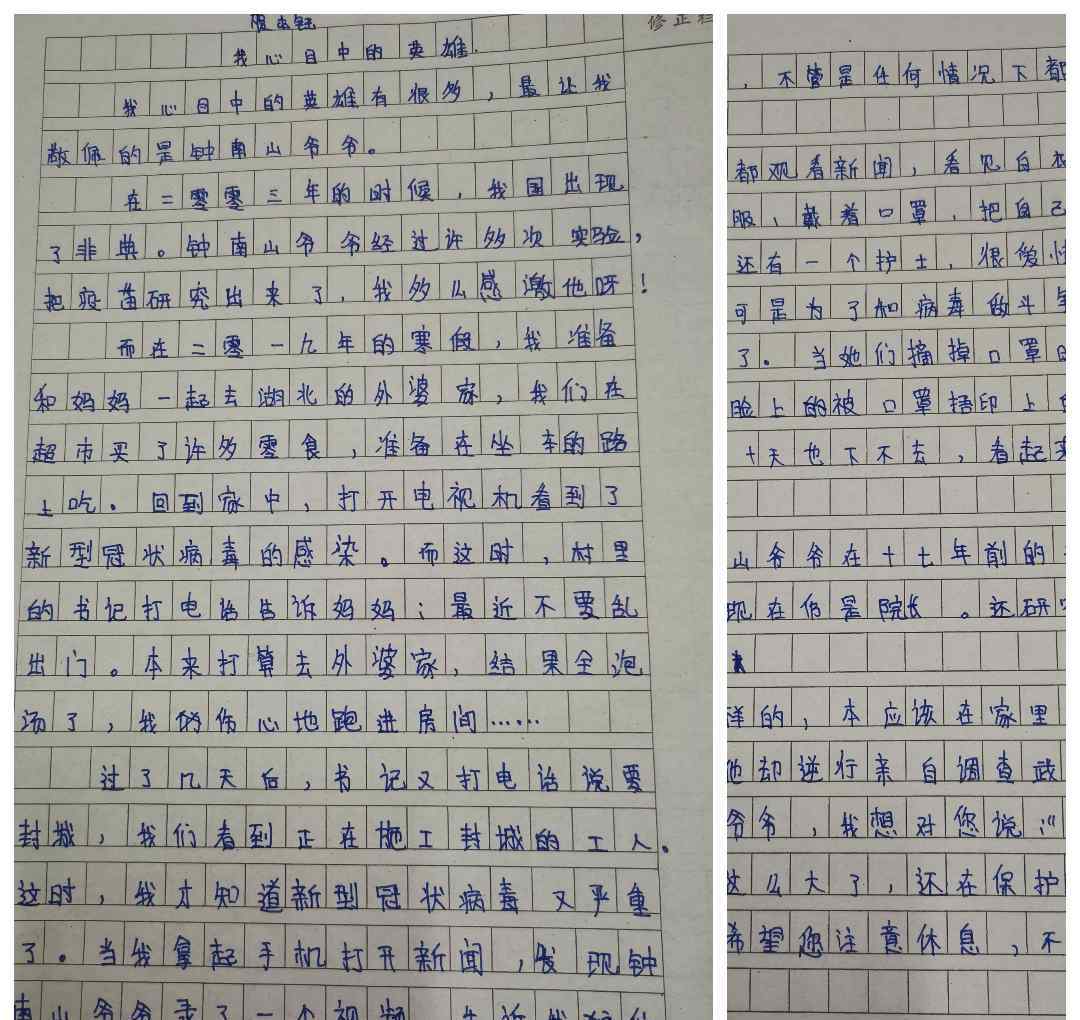 修正栏
我心目中的英雄
我心目中的英雄有很多，最让我
敬佩的是钟南山爷爷。
在二零零三年的时候，我国出现
了非典。钟南山爷爷经过许多次实验，
把疫苗研究出来了，我多么感激他呀！
而在二零一九年的寒假，我准备
和妈妈一起去湖北的外婆家，我们在
超市买了许多零食，准备在坐车的路
上吃。回到家中，打开电视机看到了
新型冠状病毒的感染。而这时，村里
的书记打电话告诉妈妈：最近不要乱
出门。本来打算去外婆家，结果全泡
汤了，我伤心地跑进房间……
过了几天后，书记又打电话说要
封城，我们看到正在施工封城的工人。
这时，我才知道新型冠状病毒又严重
了。当我拿起手机打开新闻，发现钟
南山爷爷录了一个视频
，不管是任何情况下都
都观看新闻，看见白衣
服、戴着口罩，把自己
还有一个护士，很爱
可是为了和病毒做斗争
了。当她们摘掉口罩
脸上的被口罩捂印上
十天也下不去，看起来
山爷爷在十七年前的
现在仍是院长。还研究
的，本应该在家里
他却逆行亲自调查武
爷爷，我想对您说：“
这么大了，还在保护
希望您注意休息，不